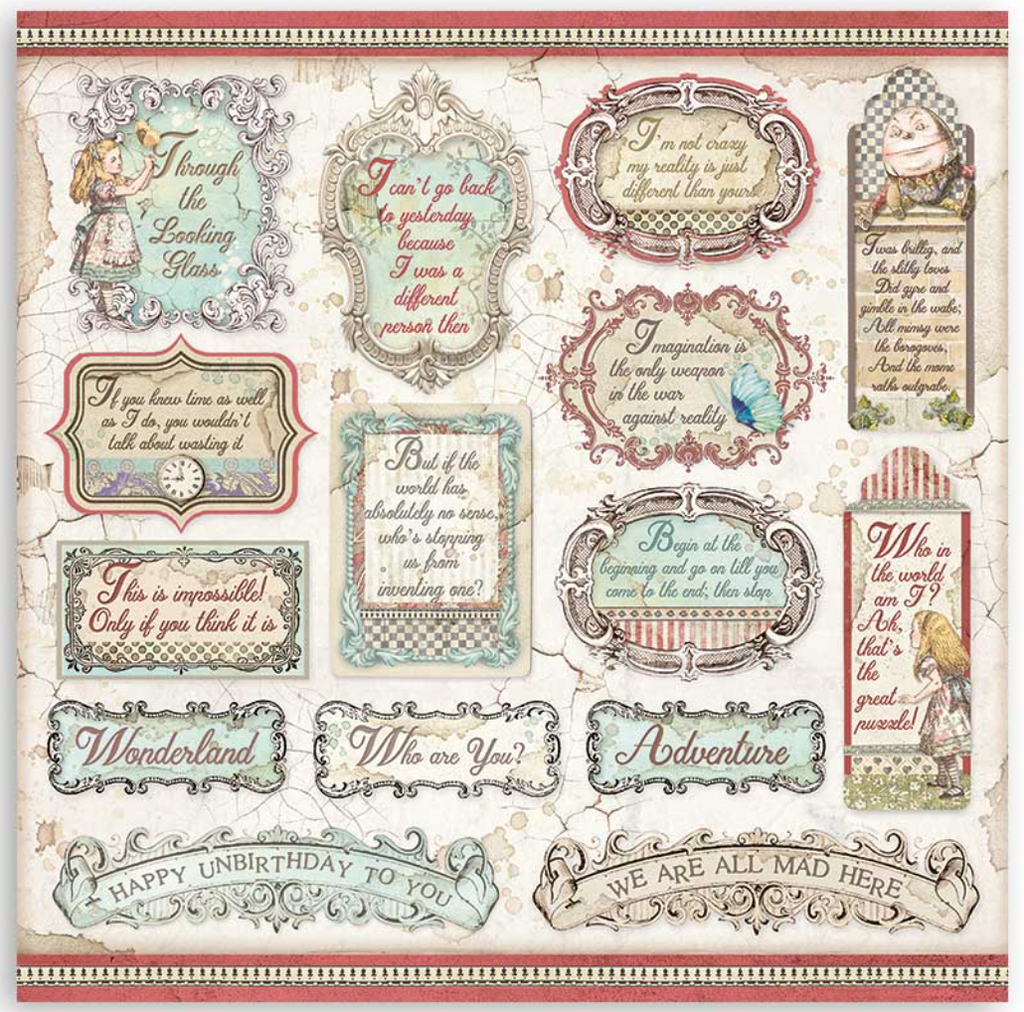 Through
the
Looking
Glass
I can't go back
to yesterday
because
I was a
different
person then
I'm not crazy
my reality is just
different than yours
Twas brillig, and
the slithy toves
Did gyre and
gimble in the wabe;
All mimsy were
the borogoves,
And the mome
raths outgrabe.
If you knew time as well
as I do, you wouldn't
talk about wasting it
Imagination is
the only weapon
in the war
against reality
But if the
world has
absolutely no sense,
who's stopping
us from
inventing one?
Begin at the
beginning and go on till you
come to the end; then stop
Who in
the world
am I?
Ah,
that's
the
great
puzzle!
This is impossible!
Only if you think it is
Wonderland
Who are You?
Adventure
HAPPY UNBIRTHDAY TO YOU
WE ARE ALL MAD HERE